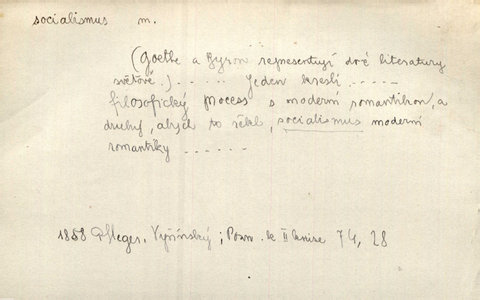 socialismus m.
(Goethe a Byron representují dvě literatury
světové.) . . . . . Jeden kreslí . . . . .
filosofický process s moderní romantikou, a
druhý, abych to řekl, socialismus moderní
romantiky . . . . . .
1858 Pfleger. Vyšínský; Pozn. k II knize 74, 28